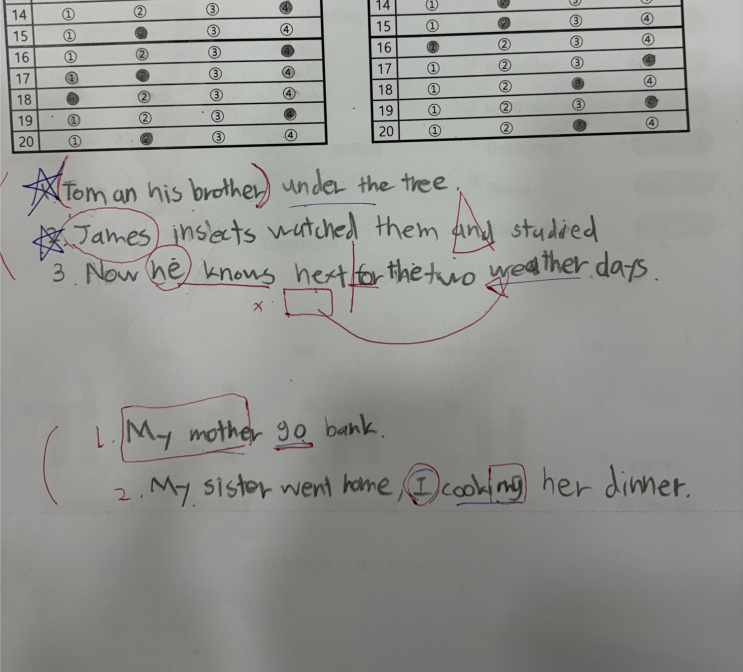 14 ① ② ③ ④
15 ① ② ③ ④
16 ① ② ③ ④
17 ① ② ③ ④
18 ① ② ③ ④
19 ① ② ③ ④
20 ① ② ③ ④
14 ① ② ③ ④
15 ① ② ③ ④
16 ① ② ③ ④
17 ① ② ③ ④
18 ① ② ③ ④
19 ① ② ③ ④
20 ① ② ③ ④
Tom an his brother) under the tree.
2. James insects watched them and studied
3. Now he knows next for the two weather days.
x
1. My mother go bank.
2. My sister went home, I cooking her dinner.